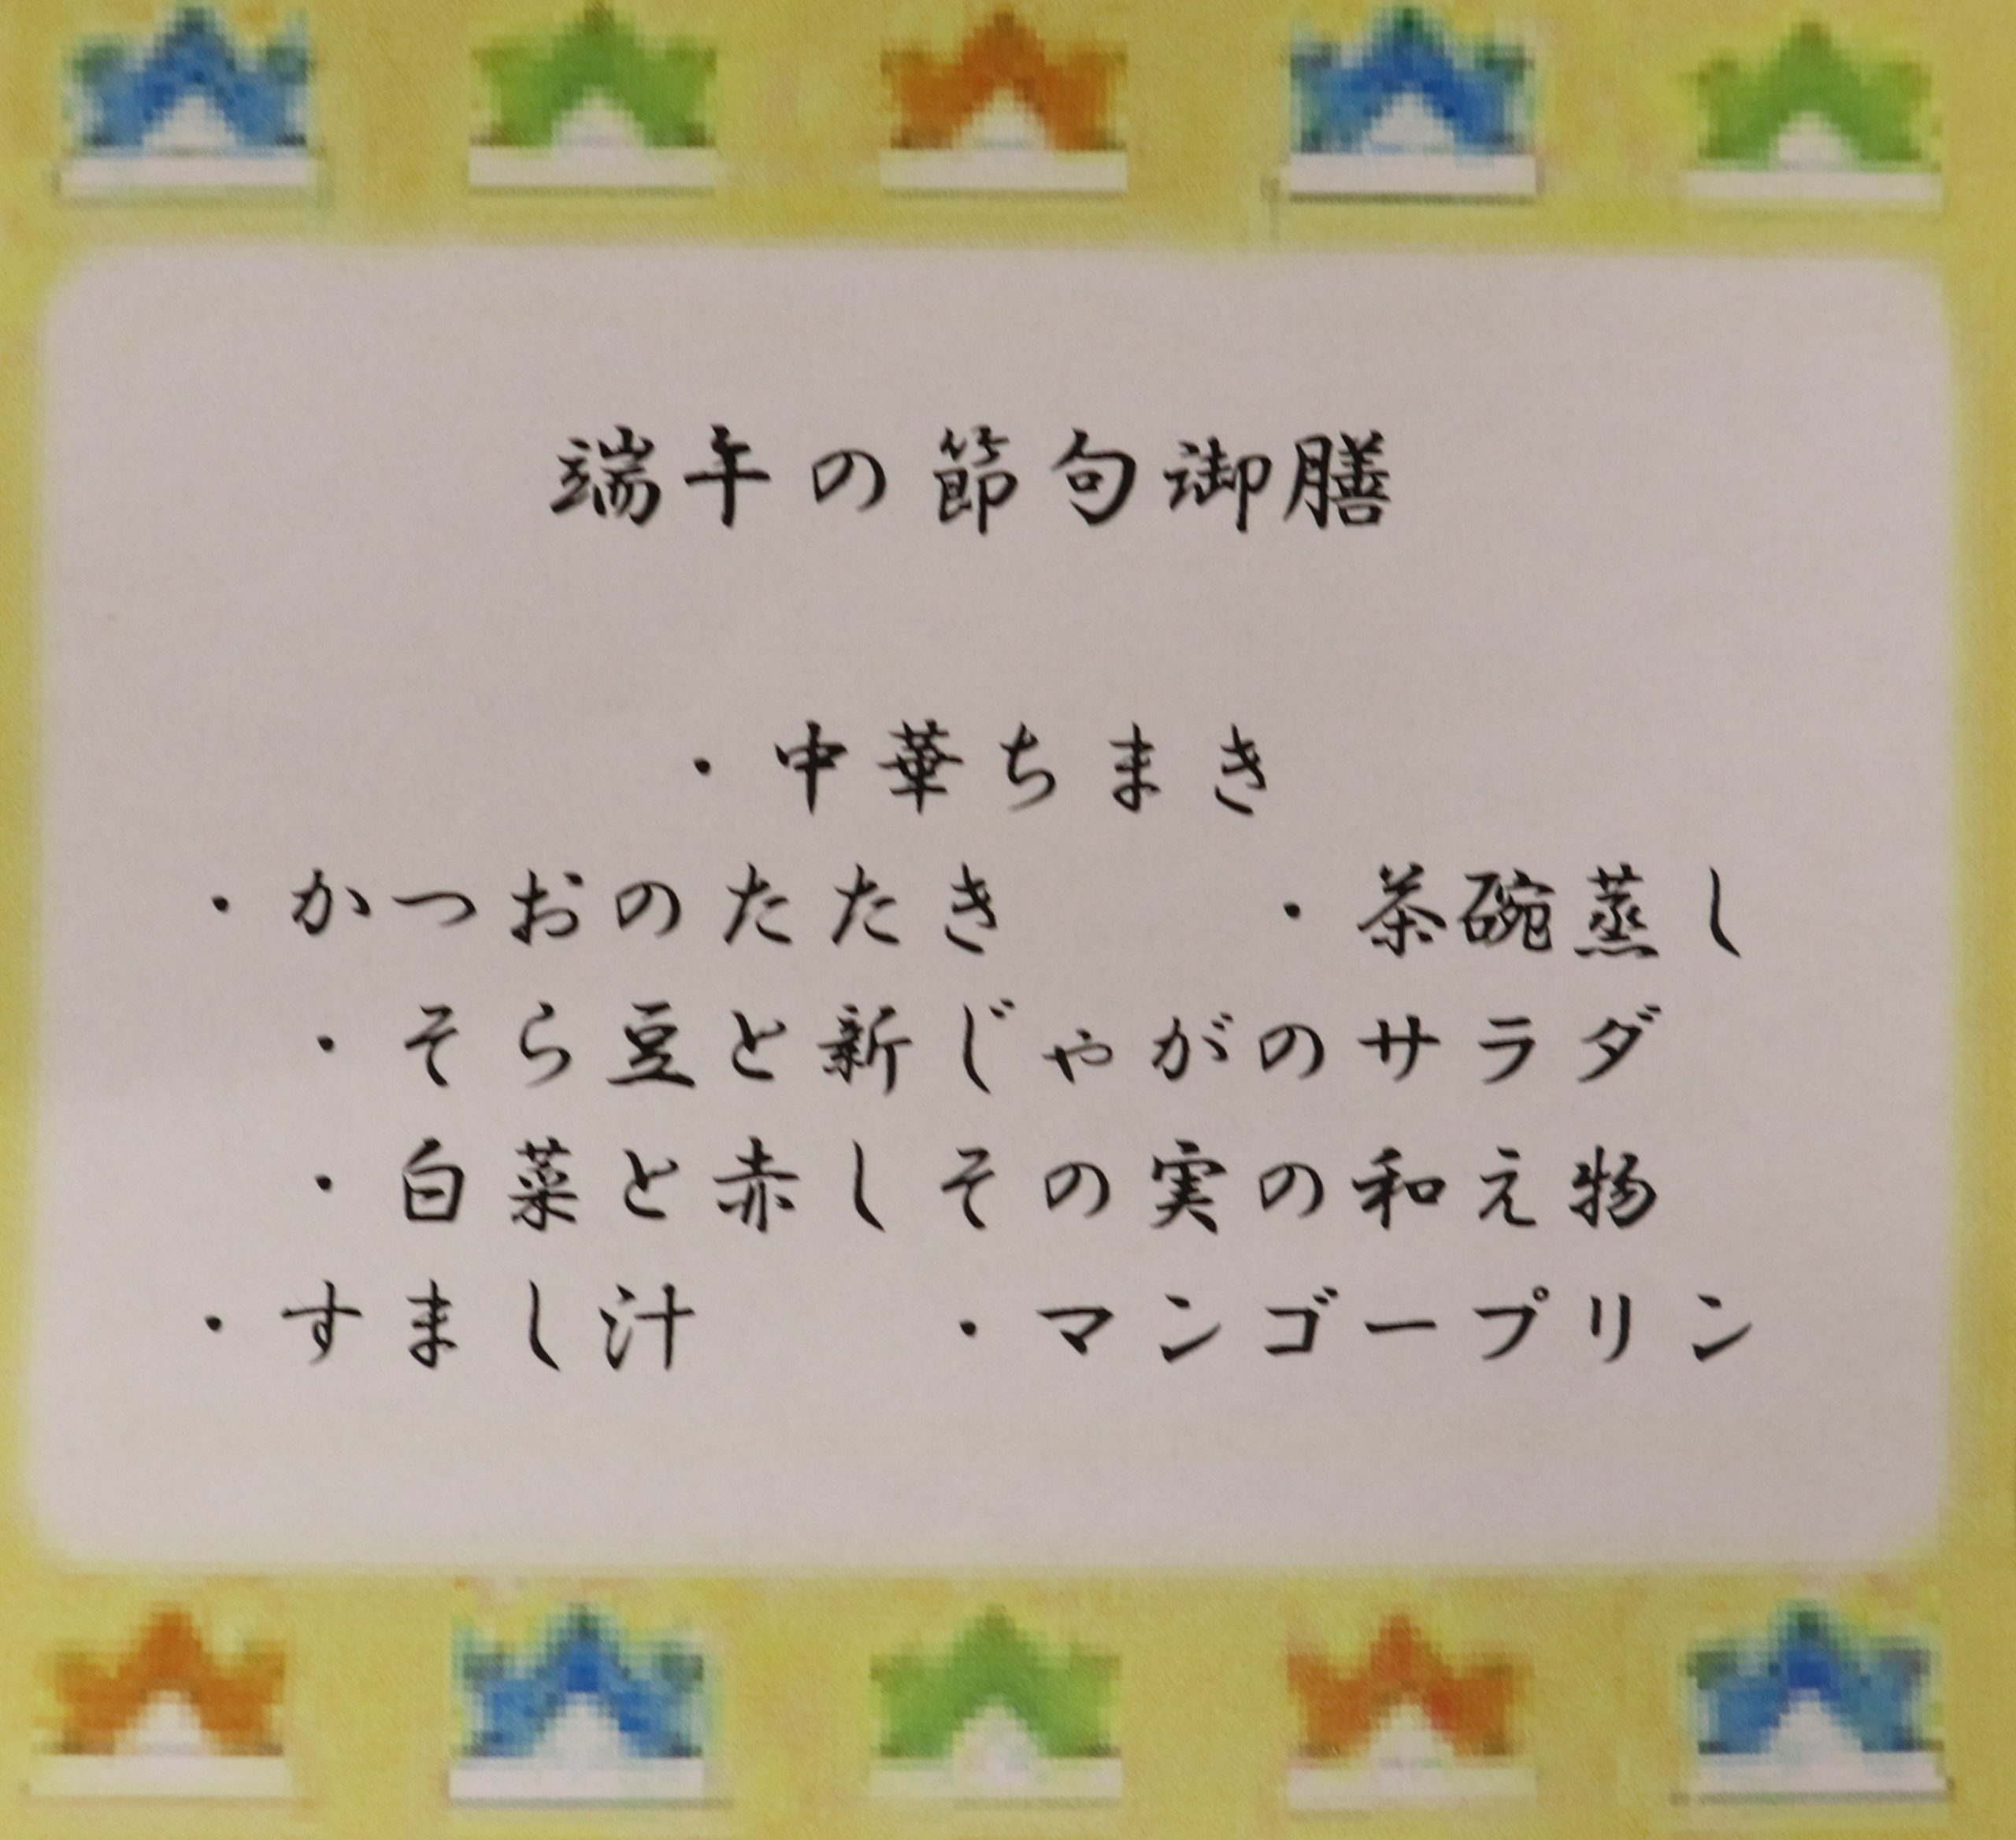 端午の節句御膳
・中華ちまき
・かつおのたたき　　・茶碗蒸し
・そら豆と新じゃがのサラダ
・白菜と赤しその実の和え物
・すまし汁　　・マンゴープリン